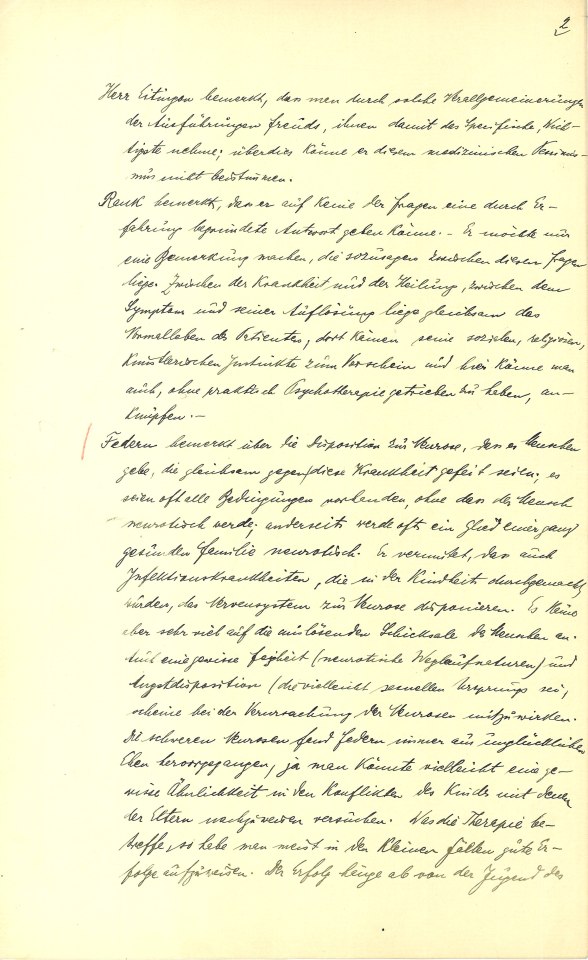 2
Herr Eitingon bemerkt, dass man durch solche Verallgemeinerungen
der Ausführungen Freuds, ihnen damit das Spezifische, Wich-
tigste nehme; überdies könne er diesem medizinischen Pessimis-
mus nicht beistimmen.
Rank bemerkt, dass er auf keine der Fragen eine durch Er-
fahrung begründete Antwort geben könne. – Er möchte nur
eine Bemerkung machen, die sozusagen zwischen diesen Fragen
liege. Zwischen der Krankheit und der Heilung, zwischen dem
Symptom und seiner Auflösung liege gleichsam das
Normalleben des Patienten, dort kämen seine sozialen, religiösen,
künstlerischen Instinkte zum Vorschein und hier könne man
auch, ohne praktisch Psychotherapie getrieben zu haben, an-
knüpfen. –
Federn bemerkt über die Disposition zur Neurose, dass es Menschen
gebe, die gleichsam gegen diese Krankheit gefeit seien; es
seien oft alle Bedingungen vorhanden, ohne dass der Mensch
neurotisch werde; anderseits werde oft ein Glied einer ganz
gesunden Familie neurotisch. Er vermutet, dass auch
Infektionskrankheiten, die in der Kindheit durchgemacht
würden, das Nervensystem zur Neurose disponieren. Es käme
aber sehr viel auf die auslösenden Schicksale des Menschen an.
Auch eine gewisse Feigheit (neurotische Weglaufnaturen) und
Angstdisposition (die vielleicht sexuellen Ursprungs sei,
scheine bei der Verursachung der Neurosen mitzuwirken.
Die schweren Neurosen fand Federn immer aus unglücklichen
Ehen hervorgegangen, ja man könnte vielleicht eine ge-
wisse Ähnlichkeit in den Konflikten des Kindes mit denen
der Eltern nachzuweisen versuchen. Was die Therapie be-
treffe, so habe man meist in den kleinen Fällen gute Er-
folge aufzuweisen. Der Erfolg hänge ab von der Jugend des